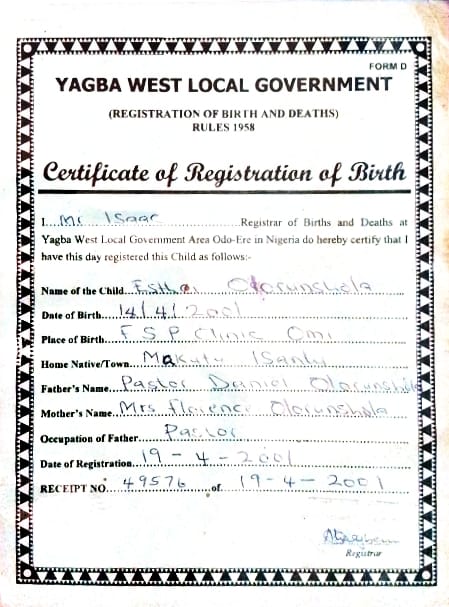 FORM D
YAGBA WEST LOCAL GOVERNMENT
(REGISTRATION OF BIRTH AND DEATHS)
RULES 1958
Certificate of Registration of Birth
I....Mr Isaac....Registrar of Births and Deaths at
Yagba West Local Government Area Odo-Ere in Nigeria do hereby certify that I
have this day registered this Child as follows:-
Name of the Child Esther Olorunshola
Date of Birth 14/4/2001
Place of Birth FSP Clinic Omi
Home Native/Town Makutu Isanlu
Father's Name Pastor Daniel Olorunshola
Mother's Name Mrs Florence Olorunshola
Occupation of Father Pastor
Date of Registration 19-4-2001
RECEIPT NO. 49576 of 19-4-2001
Registrar